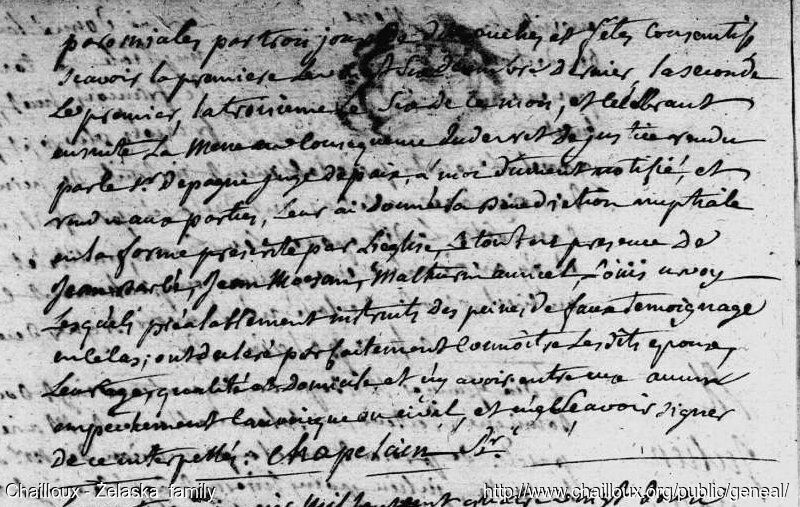 paroissiales par trois jours de dimanches et fêtes consecutifs
sçavoir la premiere le six decembre dernier, la seconde
Le premier, la troisieme le six de ce mois, et Célébrant
ensuite La Messe en Consequence du decret de justice rendu
par le Sr Depagne juge de paix, à moi dument notifié, et
rendu aux parties, Leur ai donné la Bénédiction nuptiale
en la forme prescrite par L'eglise, le tout en presence de
Jean Jean Mathurin auricet, Louis
Lesquels préalablement instruits des peines de faux temoignage
en ce cas; ont declaré parfaitement connoître Les dits époux,
Leurs ages qualités et domicile, et n'y avoir entre eux aucun
empechement canonique ou civil, et sçavoir signer
de ce interpellés. Chapelain
Chailloux - Zelaska family
http://www.chailloux.org/public/geneal/